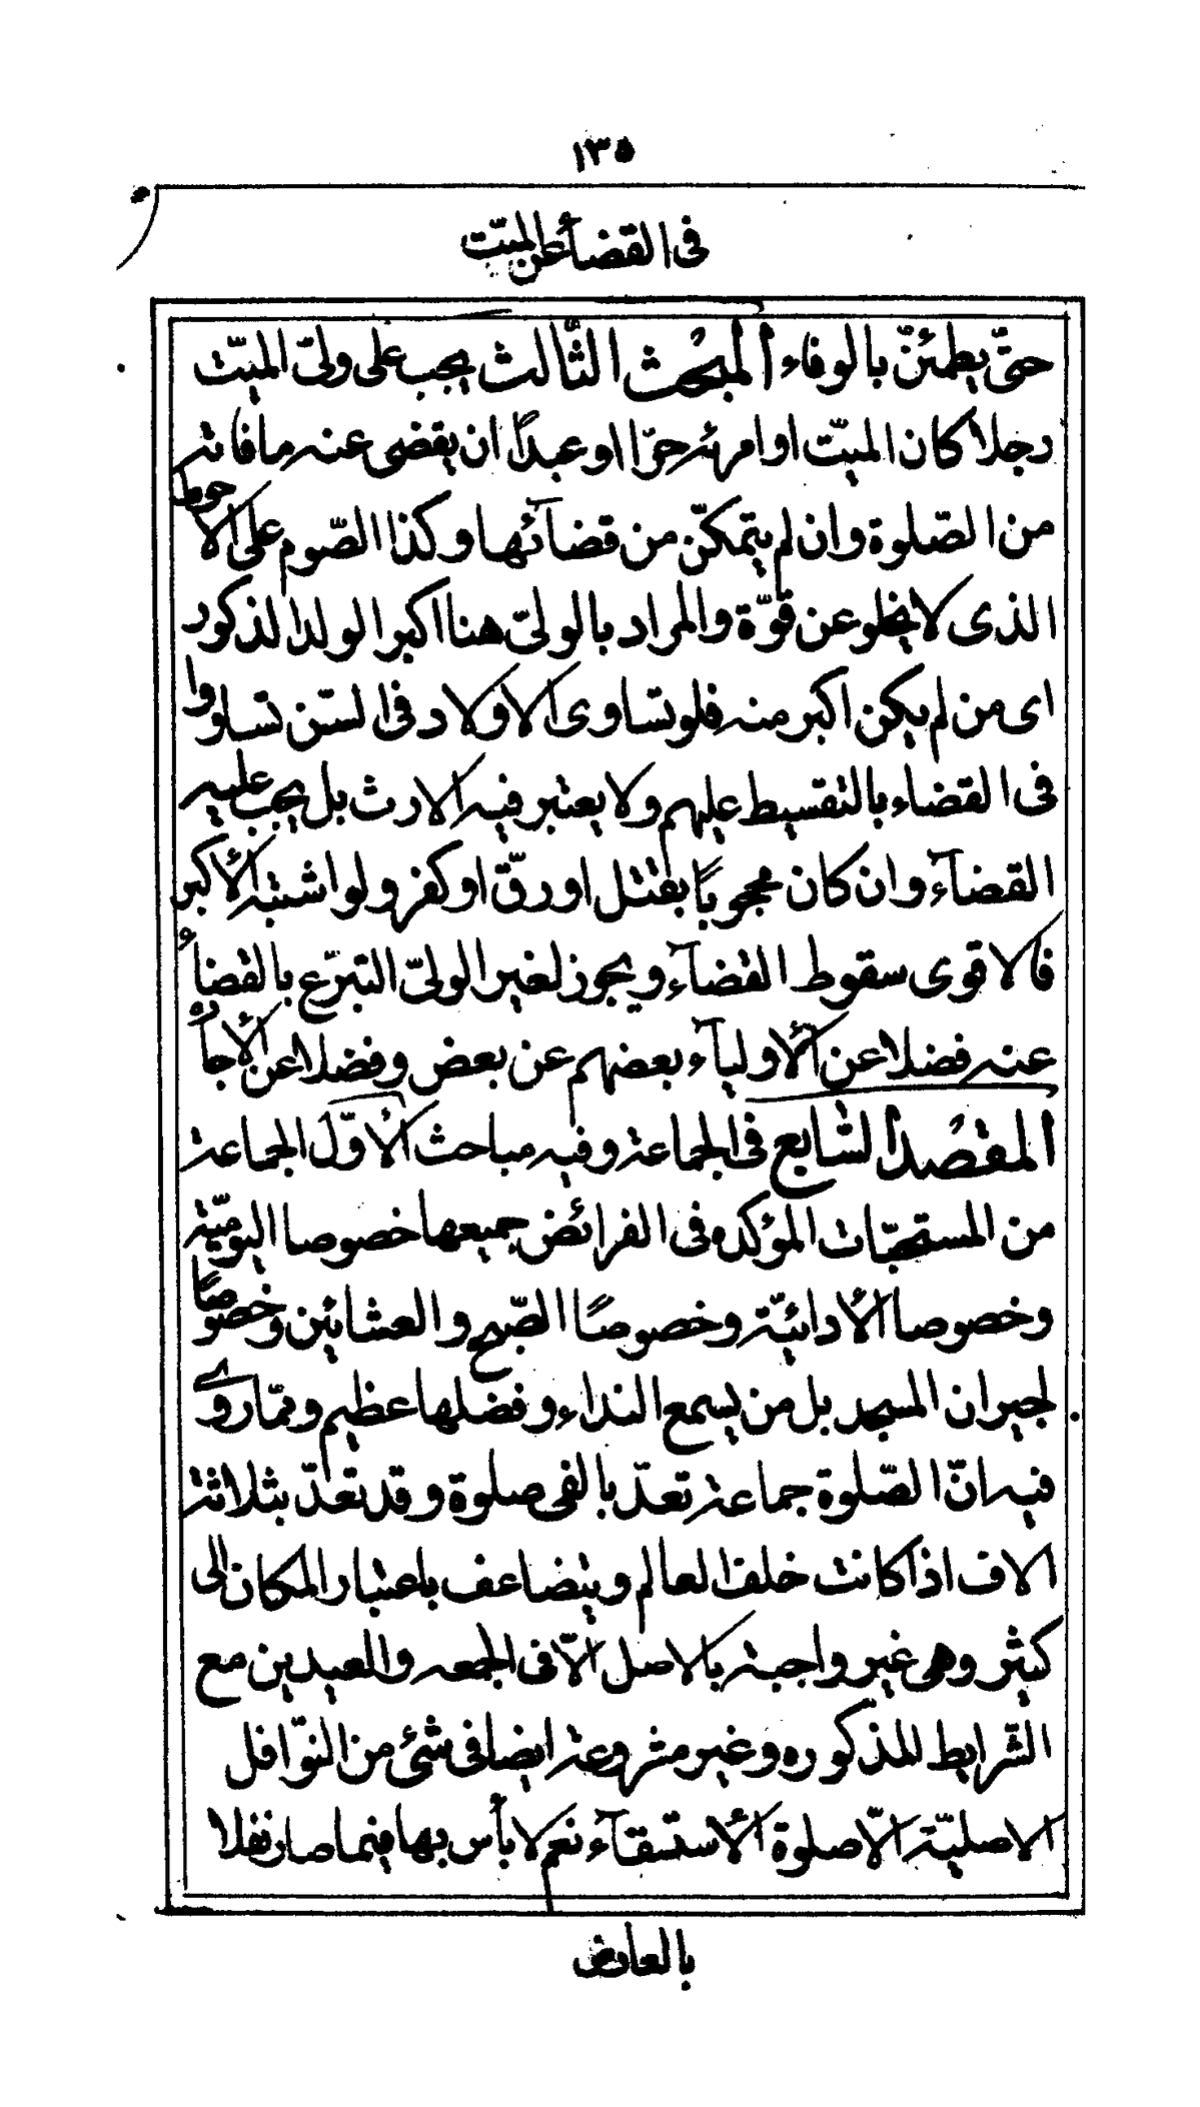 ١٣٥
فى القضاء عن الميّت
حتّى يطمئنّ بالوفاء المبحث الثّالث يجب على ولىّ الميّت
رجلا كان الميّت او امرئة حرّا او عبداً ان يقضى عنه ما فاته
من الصّلوة وان لم يتمكّن من قضآئها وكذا الصّوم على الاحوط
الذى لا يخلو عن قوّة والمراد بالولىّ هنا اكبر الولد الذكور
اى من لم يكن اكبر منه فلو تساوى الاولاد فى السّن تساووا
فى القضاء بالتقسيط عليهم ولا يعتبر فيه الارث بل يجب عليه
القضآء وان كان محجوباً بقتل او رقّ او كفر ولو اشتبه الأكبر
فالاقوى سقوط القضآء ويجوز لغير الولىّ التبرّع بالقضاء
عنه فضلا عن الأوليآء بعضهم عن بعض وفضلا عن الأجاره
المقصد السّابع فى الجماعة وفيه مباحث الأوّل الجماعة
من المستحبّات المؤكده فى الفرائض جميعها خصوصا اليوميّة
وخصوصا الأدائيّة وخصوصًا الصّبح والعشائين وخصوصًا
لجيران المسجد بل من يسمع النداء وفضلها عظيم وممّا روى
فيه انّ الصّلوة جماعة تعدّ بالفى صلوة وقد تعدّ بثلاثة
الاف اذا كانت خلف العالم ويتضاعف باعتبار المكان الى
كثير وهى غير واجبة بالاصل الّا فى الجمعه والعيدين مع
الشّرايط المذكوره وغير مشروعة ايضا فى شئ من النوّافل
الاصليّة الّا صلوة الأستسقآء نعم لا بأس بها فيما صار نفلا
بالعارض